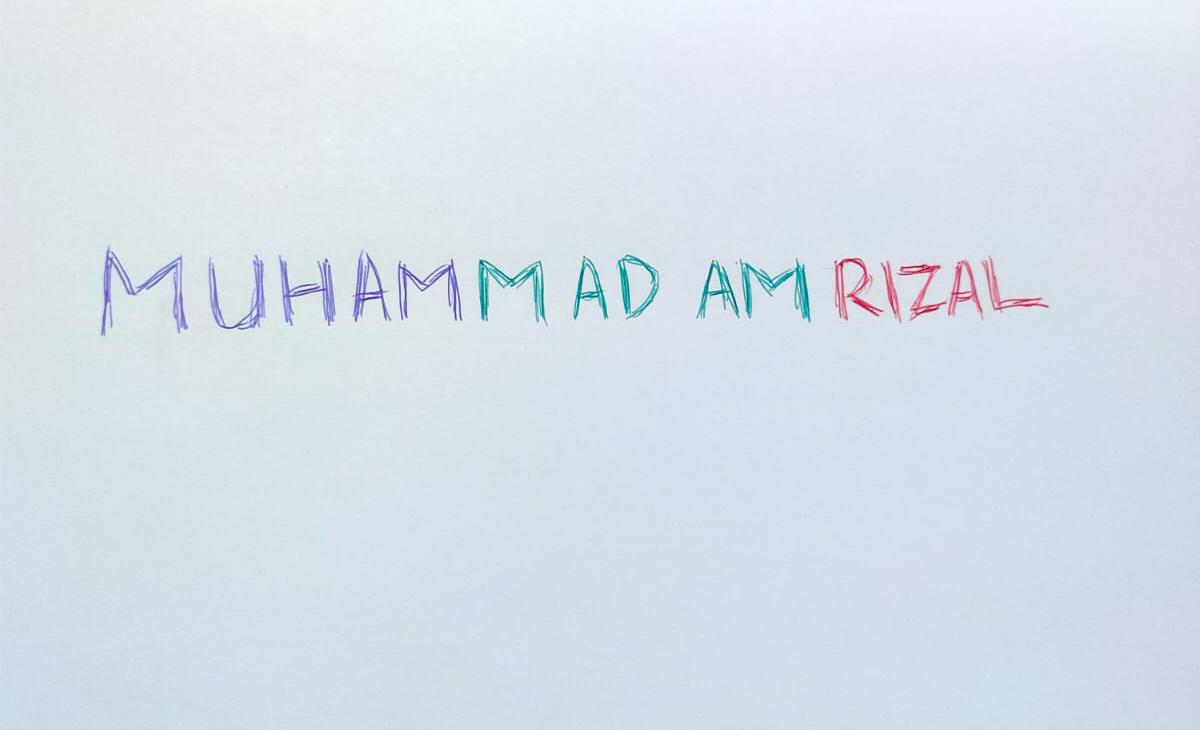 MUHAMMAD AM RIZAL